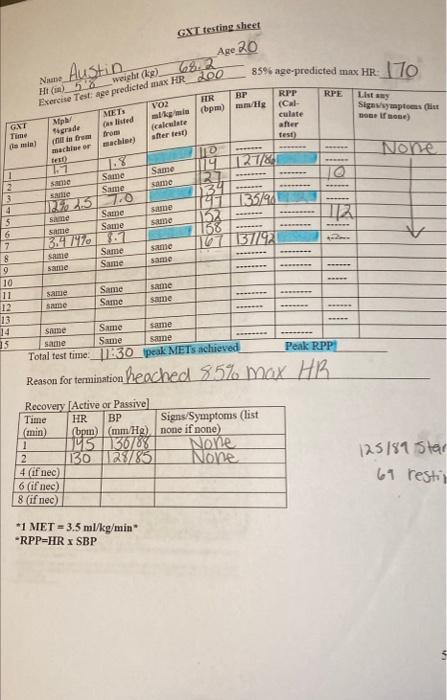 GXT testing sheet
Age 20
Name Austin weight (kg) 68.2
Ht (in) 5'8
Exercise Test: age predicted max HR 200 85% age-predicted max HR: 170
GXT Time (in min) Mph/ %grade (fill in from machine or test) METs (as listed from machine) VO2 ml/kg/min (calculate after test) HR (bpm) BP mm/Hg RPP (Cal- culate after test) RPE List any Signs/symptoms (list none if none)
1 1.7 1.8 110 -------- -------- ------ None
2 same Same Same 114 127/86 ------
3 same Same Same 127 -------- -------- 10
4 12% 2.5 7.0 134 -------- -------- ------
5 same Same same 147 135/90 ------
6 same Same same 152 -------- -------- 112
7 3.4 14% 8.7 158 -------- -------- ------
8 same Same same 167 137/92
9 same Same same -------- -------- ------
10 -------- -------- -----
11 same Same same
12 same Same same -------- -------- -----
13 -----
14 same Same same -------- --------
15 same Same same
Total test time: 11:30 peak METs achieved Peak RPP
Reason for termination Reached 85% max HR
Recovery [Active or Passive]
Time (min) HR (bpm) BP (mm/Hg) Signs/Symptoms (list none if none)
1 145 130/88 None
2 130 128/85 None
4 (if nec)
6 (if nec)
8 (if nec)
125/89
69
*1 MET = 3.5 ml/kg/min*
*RPP=HR x SBP
5